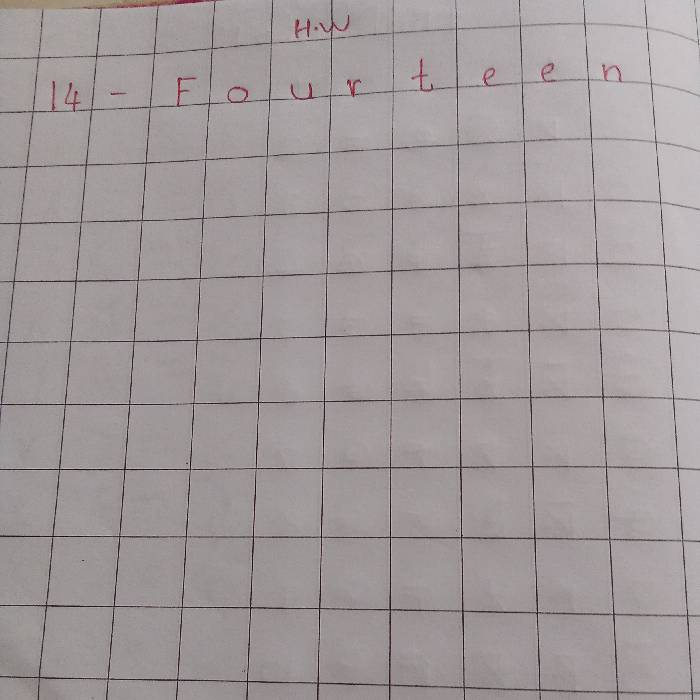 H.W
14 - Fourteen